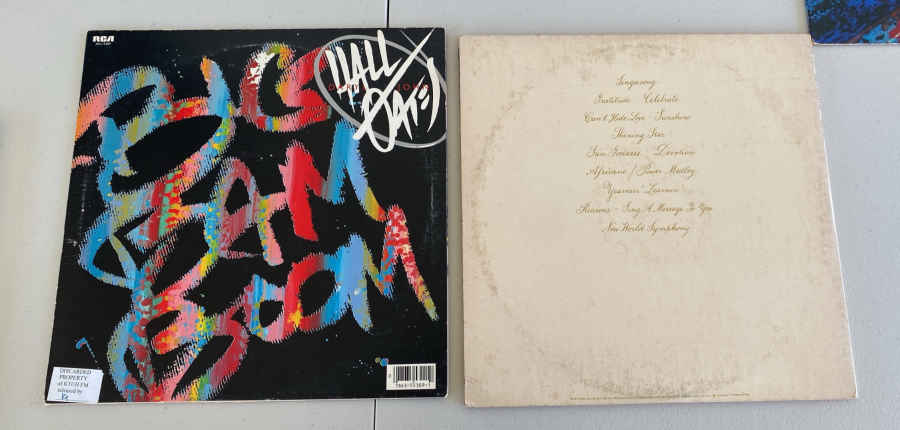 RCA
HALL
OATES
BIG
BAM
BOOM
DISCARDED
PROPERTY
Singasong
Gratitude Celebrate
Can't Hide Love - Sunshine
Shining Star
Sun Goddess - Devotion
Africano / Power Medley
Yearnin' Learnin'
Reasons - Sing A Message To You
New World Symphony